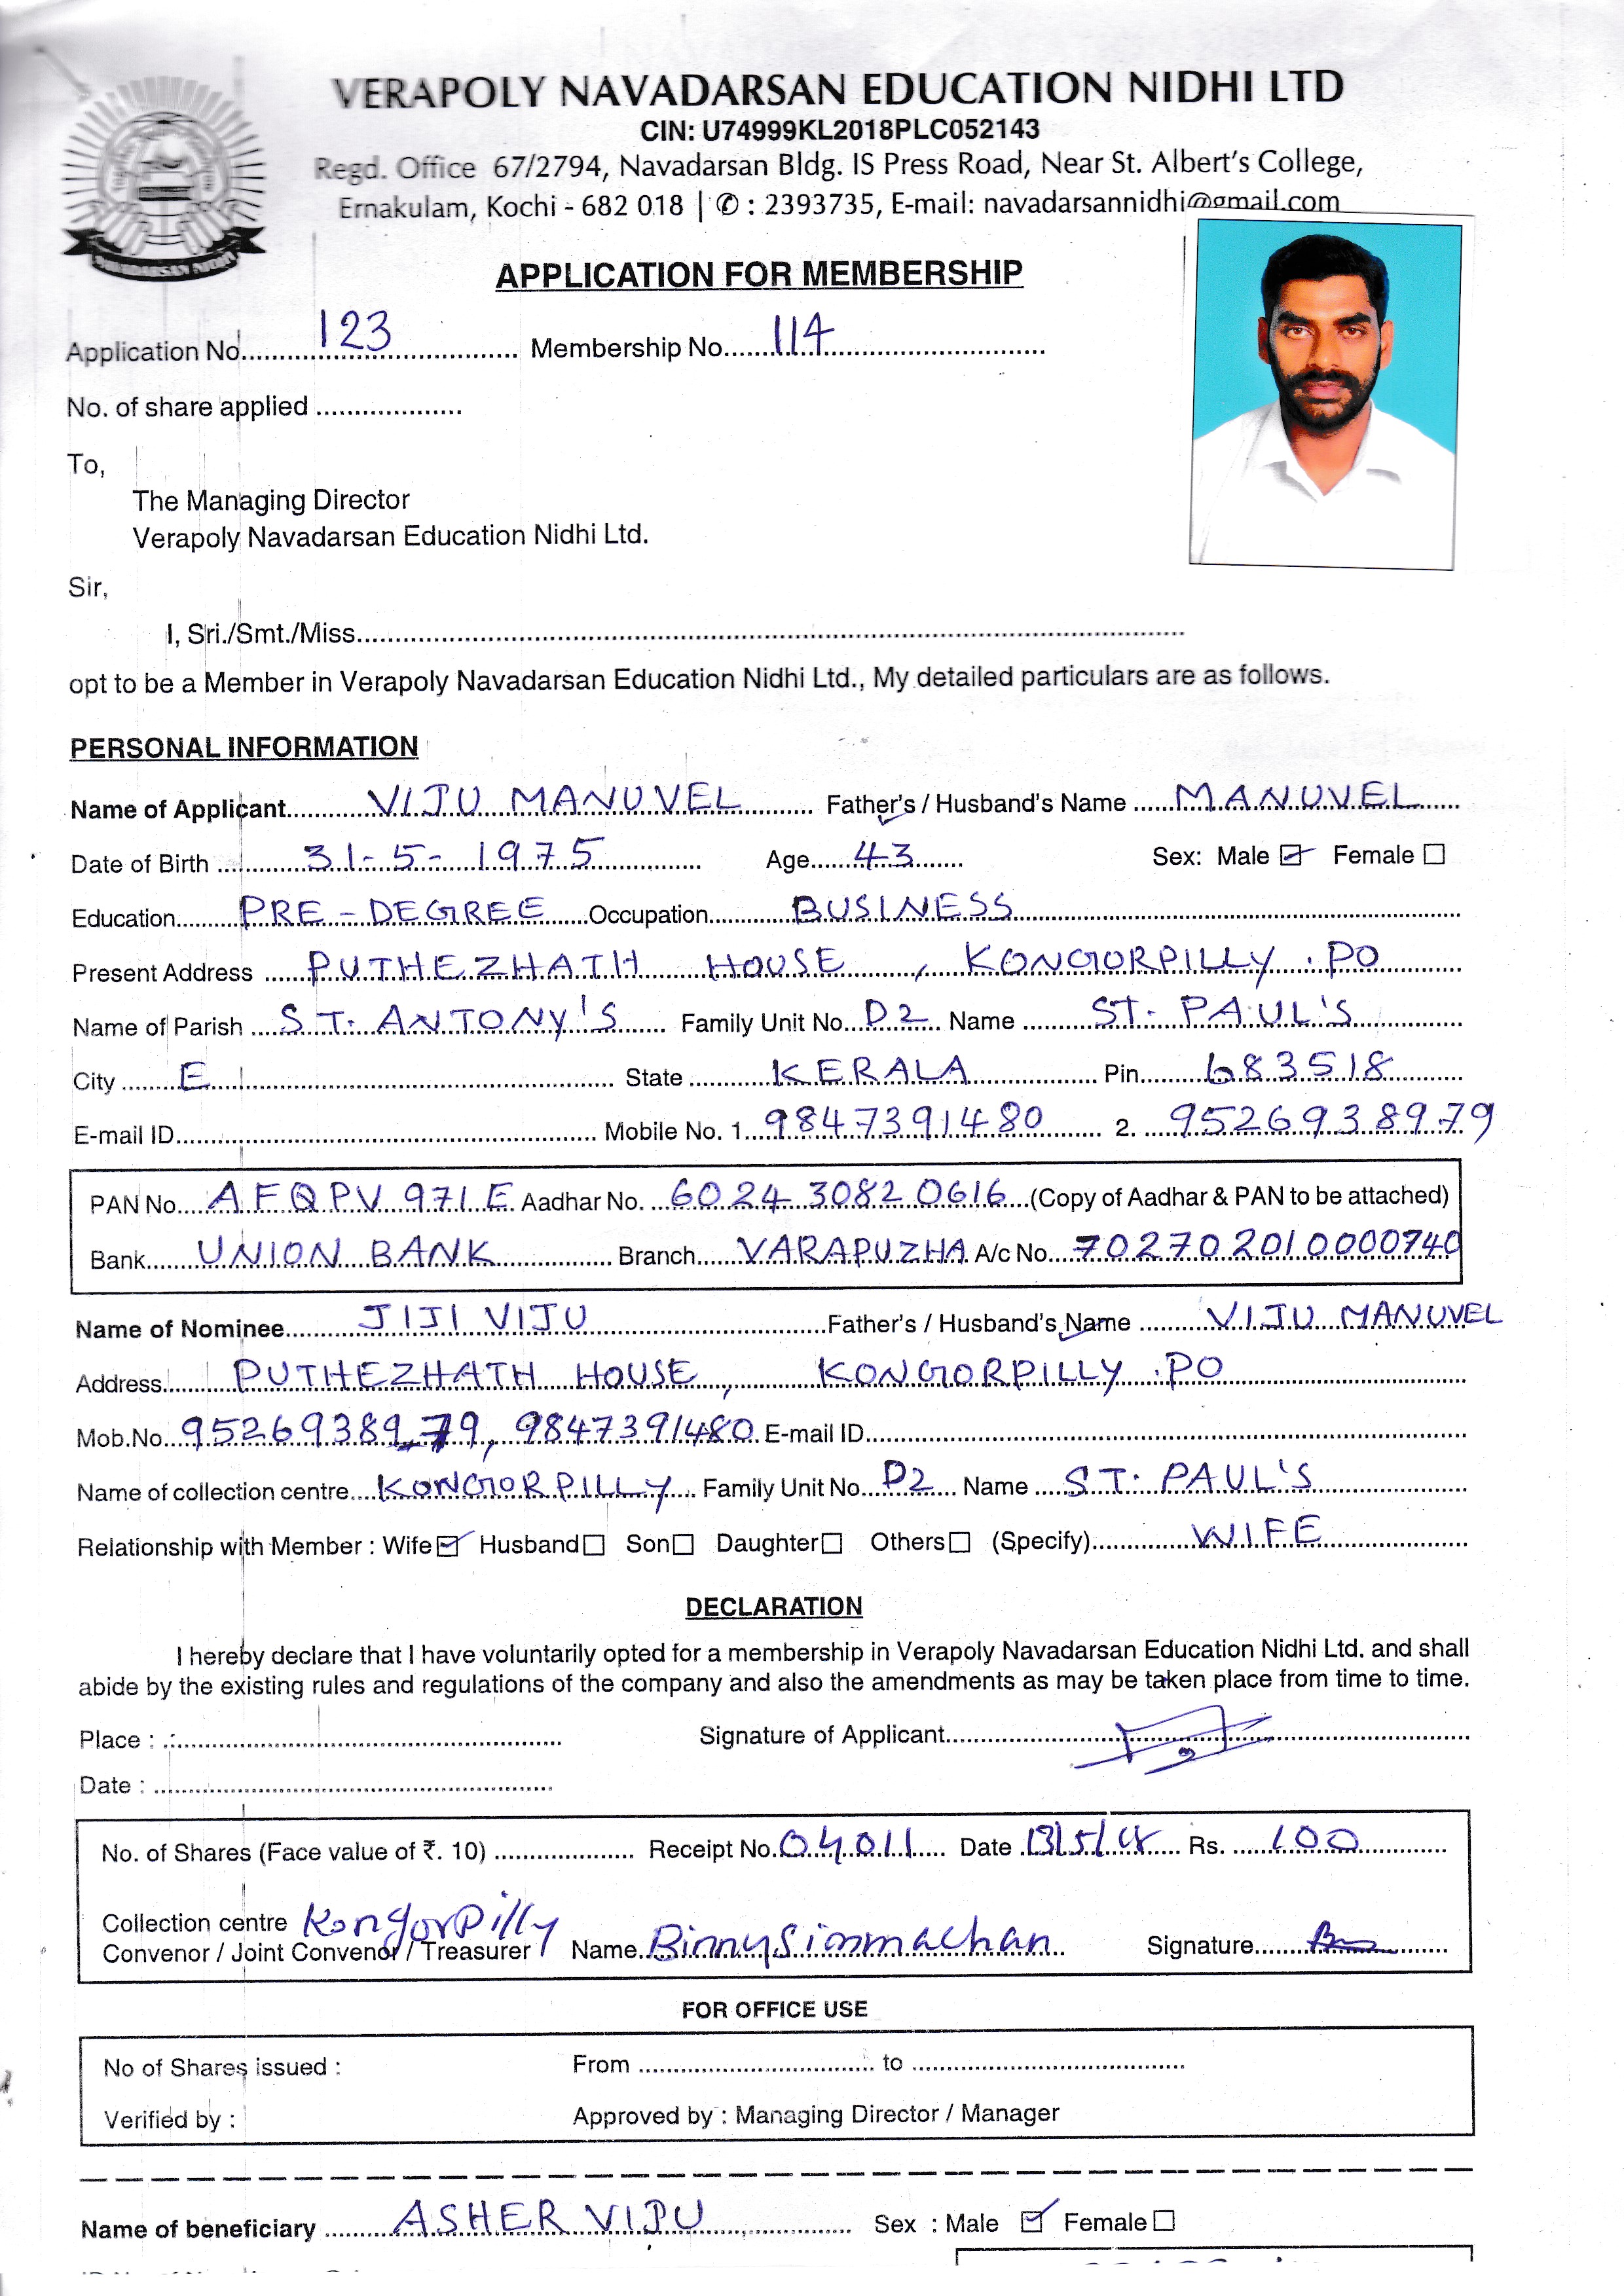 VERAPOLY NAVADARSAN EDUCATION NIDHI LTD
CIN: U74999KL2018PLC052143
Regd. Office 67/2794, Navadarsan Bldg. IS Press Road, Near St. Albert's College,
Ernakulam, Kochi - 682 018 | ✆ : 2393735, E-mail: navadarsannidhi@gmail.com
NAVADARSAN NIDHI
APPLICATION FOR MEMBERSHIP
Application No. 123 Membership No. 114
No. of share applied
To,
The Managing Director
Verapoly Navadarsan Education Nidhi Ltd.
Sir,
I, Sri./Smt./Miss
opt to be a Member in Verapoly Navadarsan Education Nidhi Ltd., My detailed particulars are as follows.
PERSONAL INFORMATION
Name of Applicant VIJU MANUVEL Father's / Husband's Name MANUVEL
Date of Birth 31-5-1975 Age 43 Sex: Male ☑ Female ☐
Education PRE-DEGREE Occupation BUSINESS
Present Address PUTHEZHATH HOUSE, KONGORPILLY.PO
Name of Parish ST. ANTONY'S Family Unit No. D2 Name ST. PAUL'S
City E State KERALA Pin 683518
E-mail ID Mobile No. 1. 9847391480 2. 9526938979
PAN No. AFQPV 971 E Aadhar No. 6024 3082 0616 (Copy of Aadhar & PAN to be attached)
Bank UNION BANK Branch VARAPUZHA A/c No. 702702010000740
Name of Nominee JIJI VIJU Father's / Husband's Name VIJU MANUVEL
Address PUTHEZHATH HOUSE, KONGORPILLY.PO
Mob.No. 9526938979, 9847391480 E-mail ID
Name of collection centre KONGORPILLY Family Unit No. D2 Name ST. PAUL'S
Relationship with Member : Wife ☑ Husband ☐ Son ☐ Daughter ☐ Others ☐ (Specify) WIFE
DECLARATION
I hereby declare that I have voluntarily opted for a membership in Verapoly Navadarsan Education Nidhi Ltd. and shall
abide by the existing rules and regulations of the company and also the amendments as may be taken place from time to time.
Place :
Signature of Applicant
Date :
No. of Shares (Face value of ₹. 10) Receipt No. 04011 Date 13/5/18 Rs. 100
Collection centre Kongorpilly
Convenor / Joint Convenor / Treasurer Name Binnysimmachan Signature
FOR OFFICE USE
No of Shares issued : From to
Verified by : Approved by : Managing Director / Manager
Name of beneficiary ASHER VIJU Sex : Male ☑ Female ☐